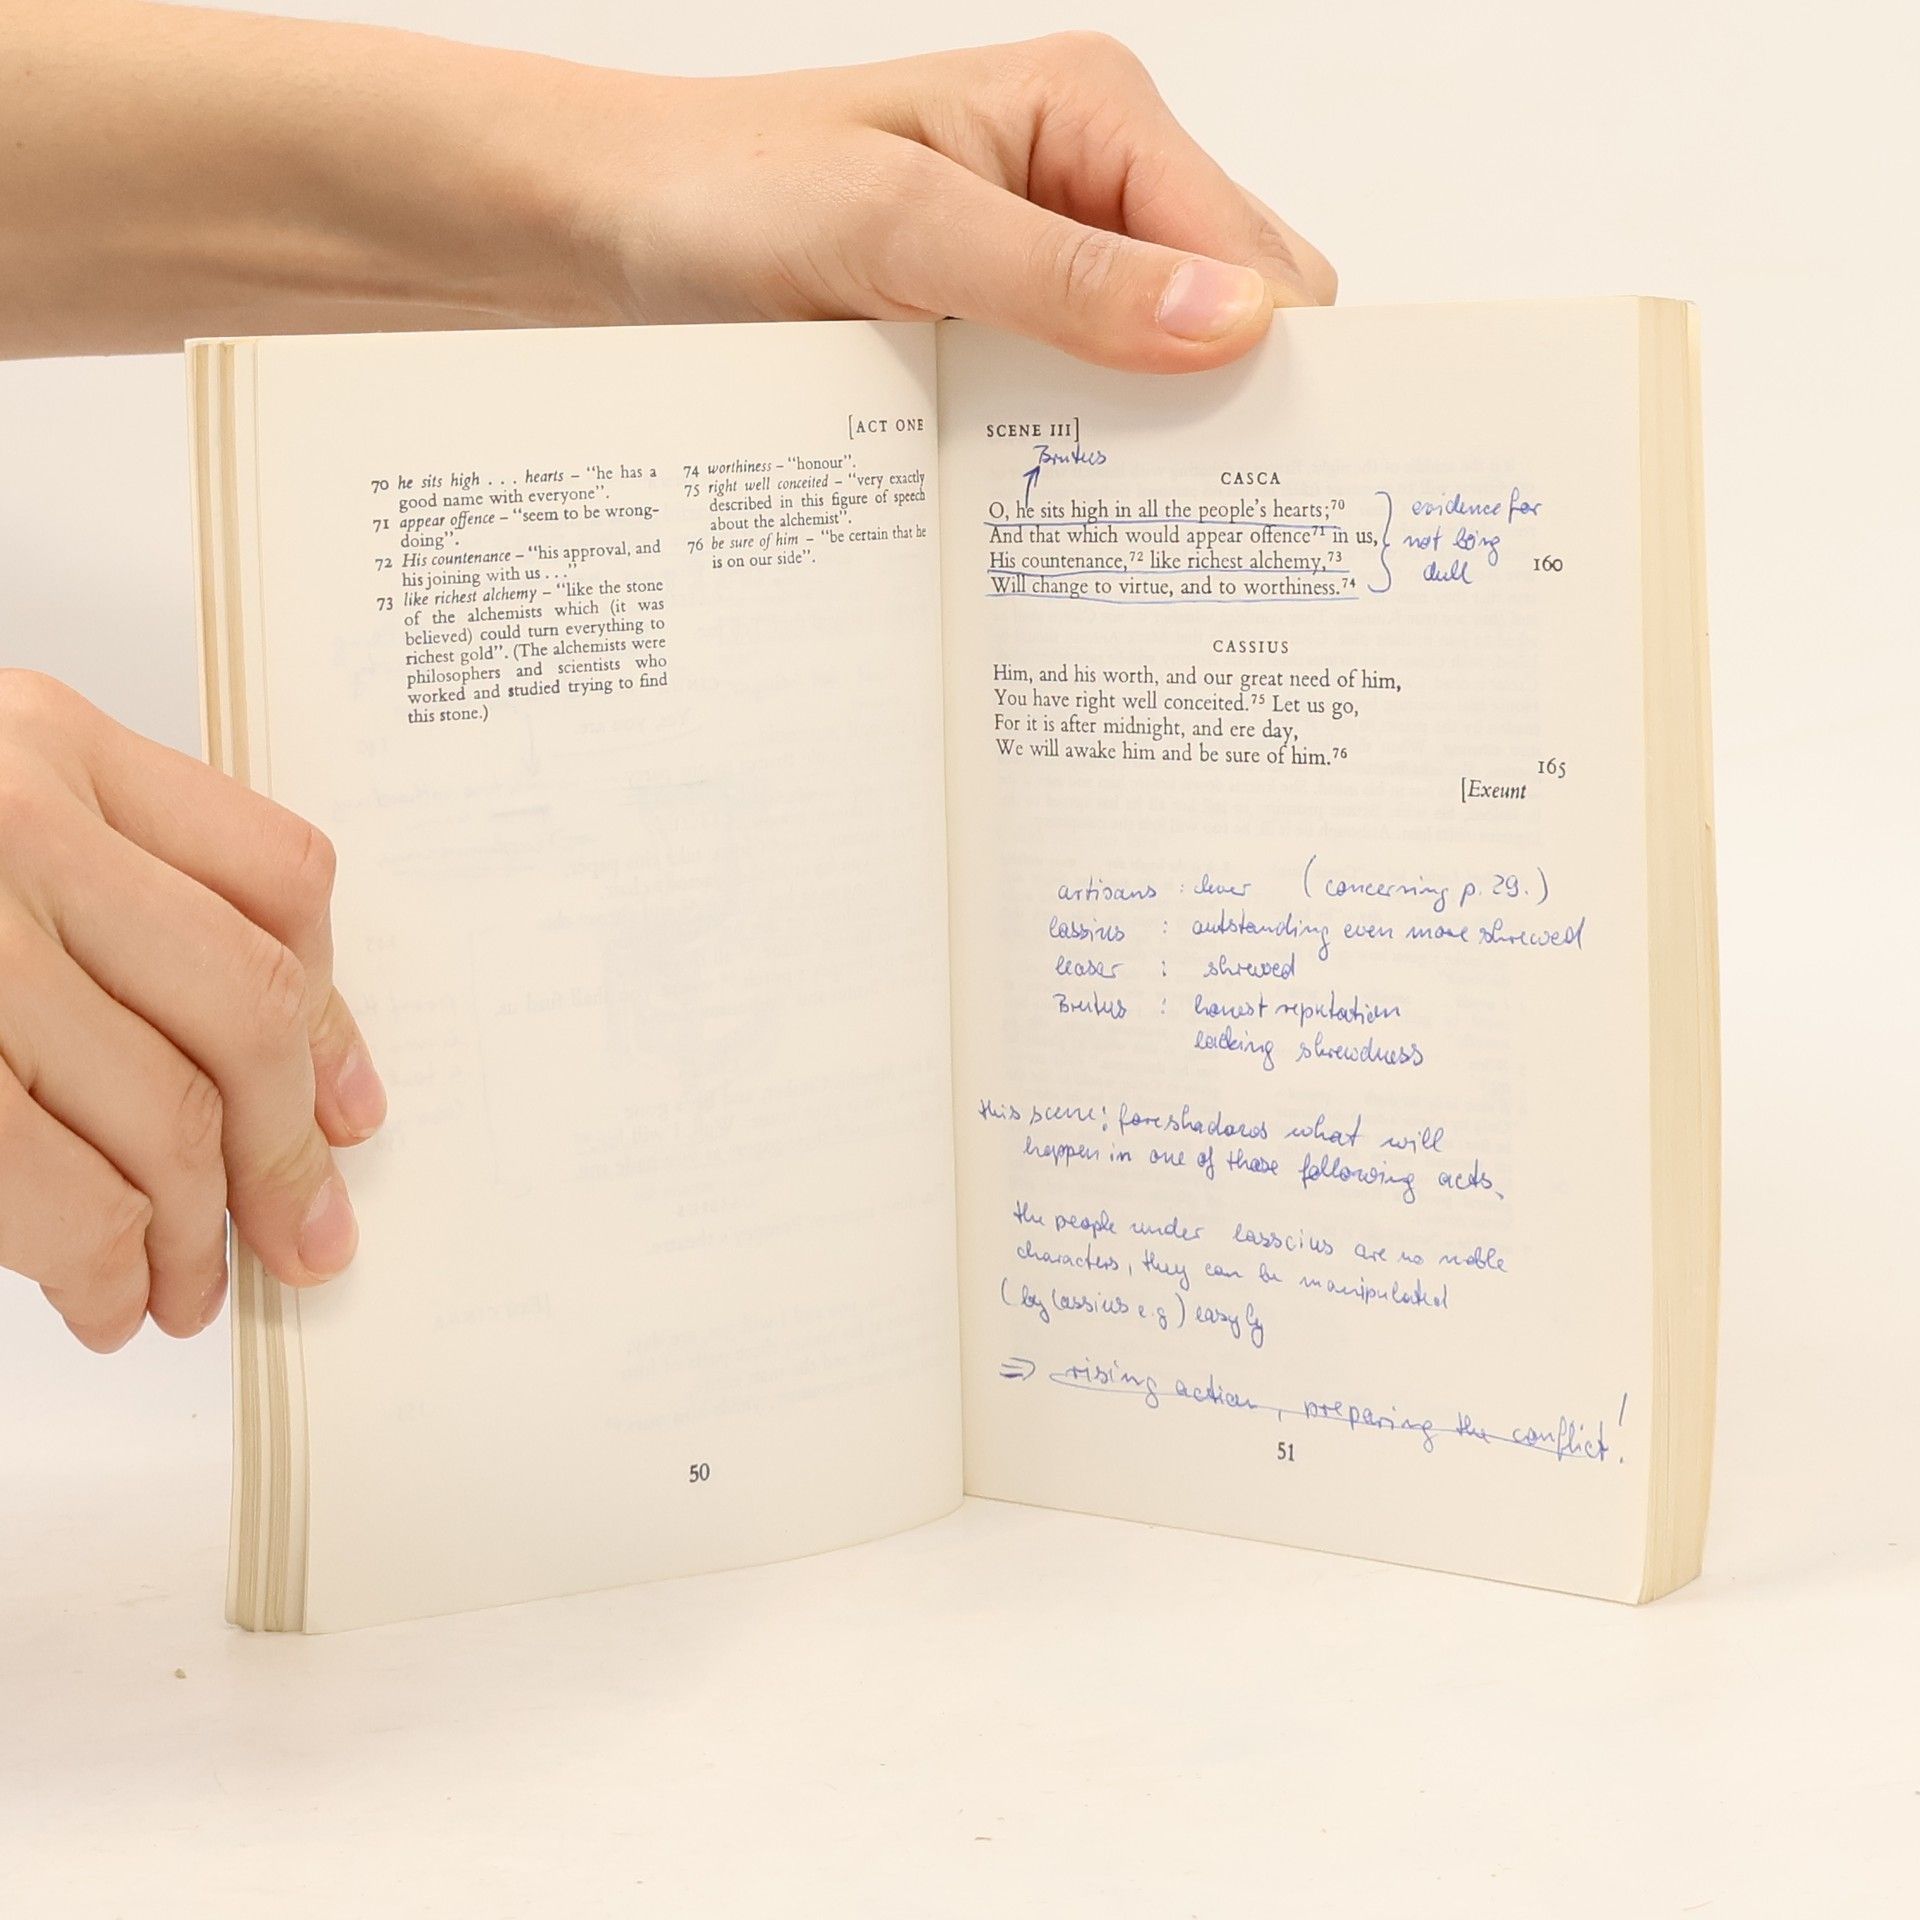 [ACT ONE
70 he sits high . . . hearts – “he has a
good name with everyone”.
71 appear offence – “seem to be wrong-
doing”.
72 His countenance – “his approval, and
his joining with us . . .”
73 like richest alchemy – “like the stone
of the alchemists which (it was
believed) could turn everything to
richest gold”. (The alchemists were
philosophers and scientists who
worked and studied trying to find
this stone.)
74 worthiness – “honour”.
75 right well conceited – “very exactly
described in this figure of speech
about the alchemist”.
76 be sure of him – “be certain that he
is on our side”.
50
SCENE III]
Brutus
CASCA
O, he sits high in all the people’s hearts;70
And that which would appear offence71 in us,
His countenance,72 like richest alchemy,73
160
Will change to virtue, and to worthiness.74
evidence for
not being
dull
CASSIUS
Him, and his worth, and our great need of him,
You have right well conceited.75 Let us go,
For it is after midnight, and ere day,
We will awake him and be sure of him.76
165
[Exeunt
artisans : clever (concerning p. 29.)
Cassius : outstanding even more shrewed
Ceaser : shrewed
Brutus : honest reputation
lacking shrewdness
this scene: foreshadows what will
happen in one of those following acts.
the people under Casscius are no noble
characters, they can be manipulated
(by Cassius e.g) easyly
⇒ rising action, preparing the conflict!
51